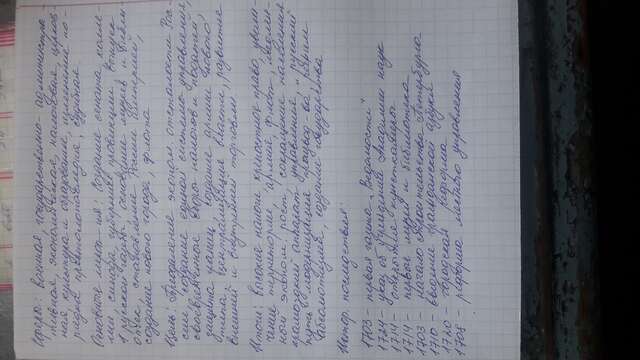 Сферы: военная, государственно-администра
тивная, экономическая, налоговая, церков-
ная, культура и образование, изменение по-
рядка престолонаследия, судебная.
Основные мероп-ия: Создание сената, колле-
гий, синода, губернии, провинции, выпуск
1 русской газеты, основание музеев и библи-
отек, становление России империей,
создание нового города, флота
Цель: Преодоление эконом. отсталости Рос-
сии, создание единой системы управления,
своевременное сбора налогов и податей,
защита границ, создание армии нового
типа, централизация власти, развитие
внешней и внутренней торговли
Итоги: высокие налоги, крепостное право, увели-
чение территории, армия, флот, медлен-
ный эконом. рост, сокращение населения
громоздкий аппарат управления, "русский
путь" модернизации, производ-ва, режим
абсолютизма, создание государства
Истор. последствия:
1703 - первая газета „Ведомости"
1724 - указ об учреждении Академии наук
1714 - открытие кунсткамеры
1714 - первые музеи и библиотека
1703 - начало строительства Петербурга
1710 - введение гражданской азбуки
1720 - городская реформа
1708 - реформа местного управления